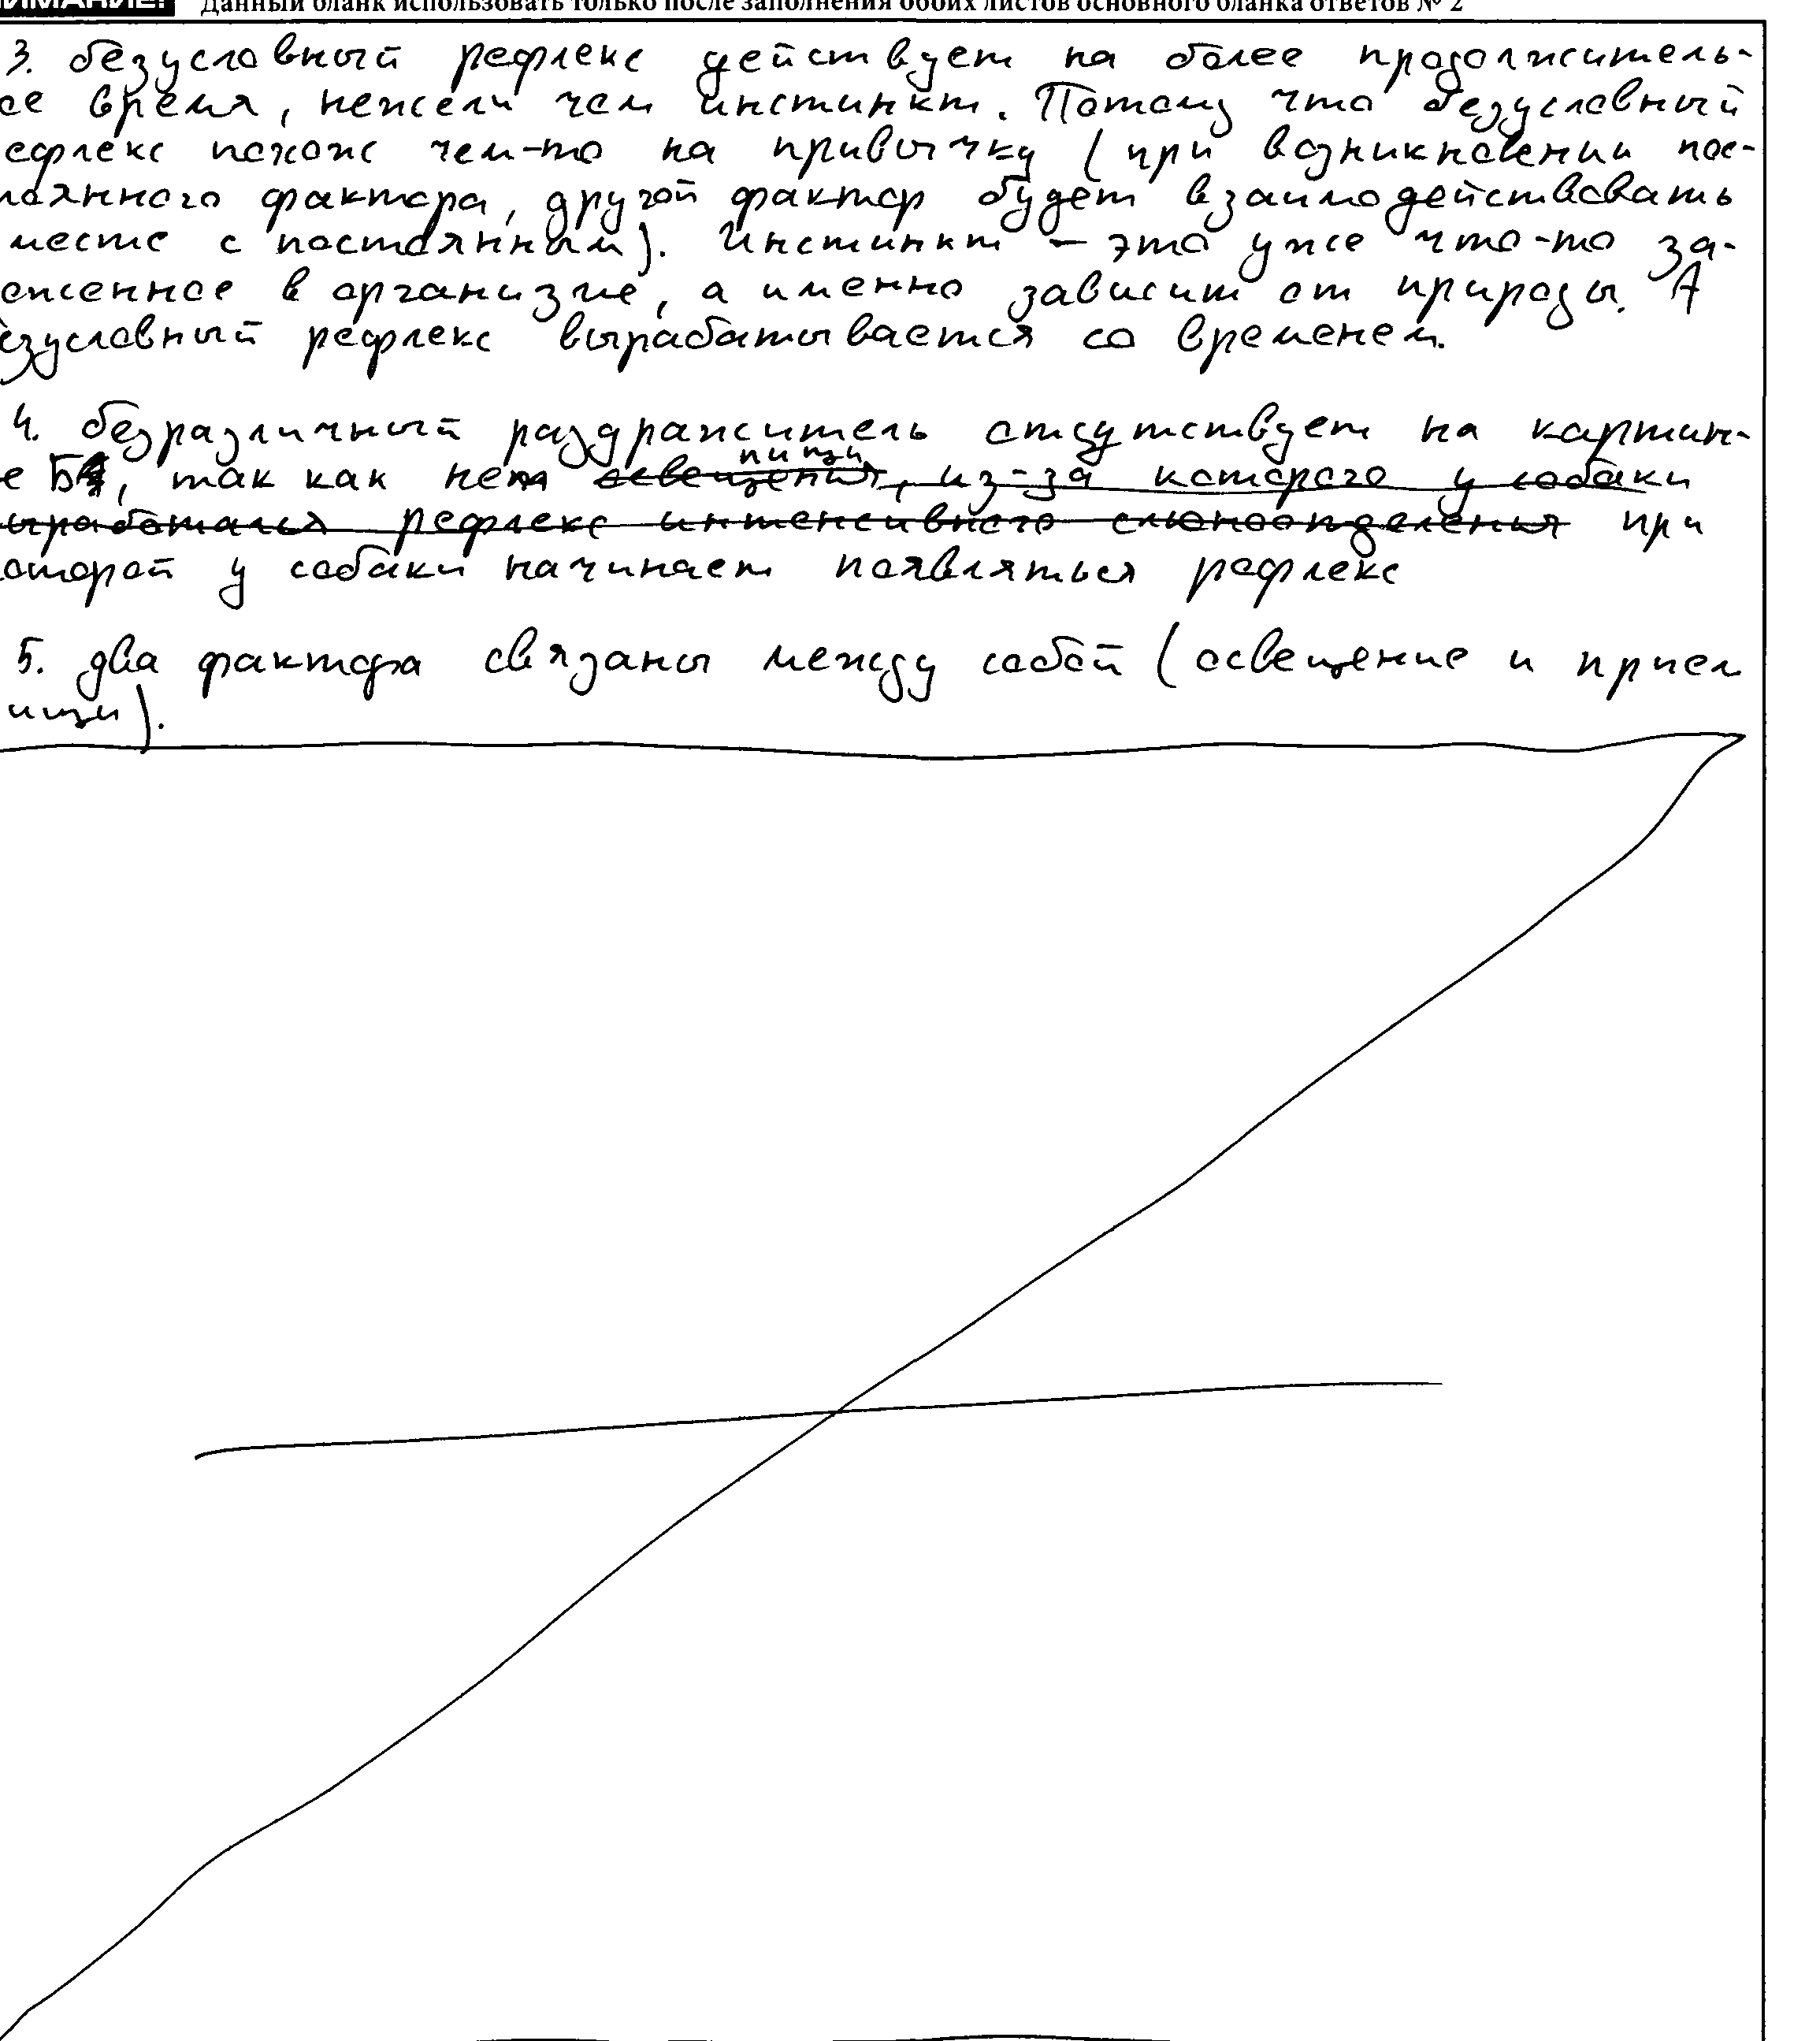 ИМАНИЕ! Данный бланк использовать только после заполнения обоих листов основного бланка ответов № 2
3. безусловный рефлекс действует на более продолжитель-
ое время, нежели чем инстинкт. Потому что безусловный
ефлекс похож чем-то на привычку (при возникновении пос-
тоянного фактора, другой фактор будет взаимодействовать
месте с постоянным). Инстинкт – это уже что-то за-
оженное в организме, а именно зависит от природы. А
езусловный рефлекс вырабатывается со временем.
4. безразличный раздражитель отсутствует на картин-
е Б, так как нет освещения, из-за которого у собаки
пищи
ыработался рефлекс интенсивного слюноотделения при
оторой у собаки начинает появляться рефлекс
5. два фактора связаны между собой (освещение и прием
ищи).